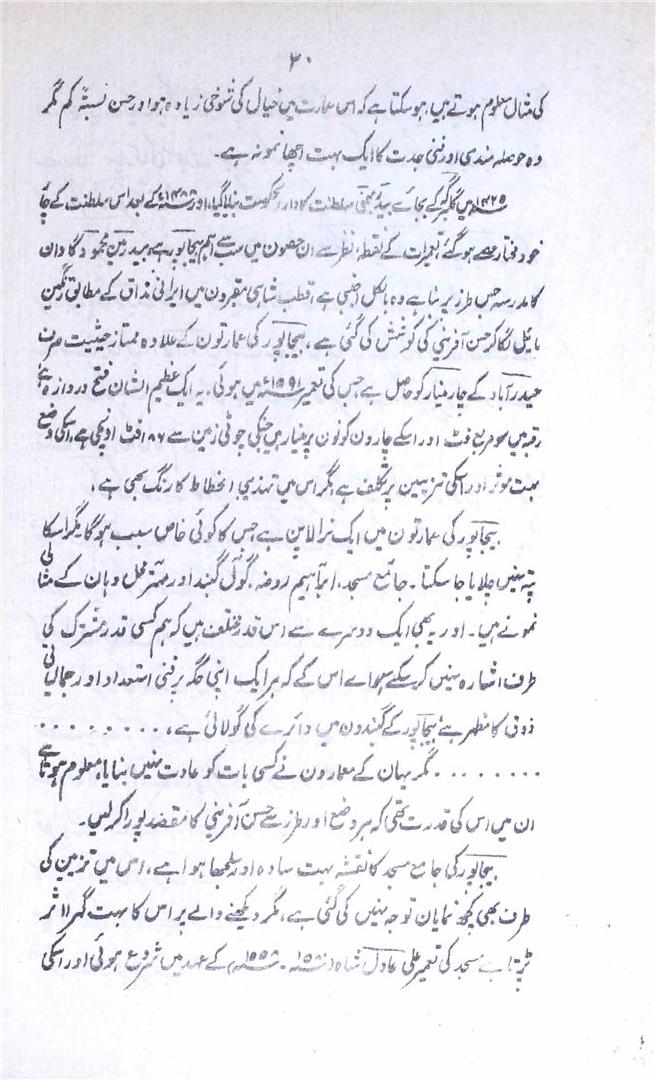 ۳۰
کی مثال معلوم ہوتے ہیں، ہو سکتا ہے کہ اس عمارت میں خیال کی شوخی زیادہ ہو اور حسن نسبتہً کم مگر
وہ حوصلہ مندی اور فنی جدت کا ایک بہت اچھا نمونہ ہے۔
۱۴۲۵ء میں گلبرگہ کے بجائے بیدر بہمنی سلطنت کا دارالحکومت بنایا گیا، اور کے بعد اس سلطنت کے پانچ
خود مختار حصے ہو گئے، تعمیرات کے نقطۂ نظر سے ان حصون میں سب سے اہم بیجاپور ہے، بیدر میں محمود گاوان
کا مدرسہ جس طرز پر بنا ہے وہ بالکل اجنبی ہے، قطب شاہی مقبرون میں ایرانی مذاق کے مطابق رنگین
ٹایل لگا کر حسن آفرینی کی کوشش کی گئی ہے، بیجاپور کی عمارتون کے علاوہ ممتاز حیثیت صرف
حیدرآباد کے چار مینار کو حاصل ہے جس کی تعمیر ۱۵۹۱ء میں ہوئی۔ یہ ایک عظیم الشان فتح دروازہ ہے
رقبہ میں سو مربع فٹ اور اسکے چارون کونون پر مینار ہیں جنکی چوٹی زمین سے ۱۸۶ فٹ اونچی ہے، اسکی وضع
بہت موثر اور اسکی تزیین پر تکلف ہے، مگر اس میں تہذیبی انحطاط کا رنگ بھی ہے،
بیجاپور کی عمارتون میں ایک نرالا پن ہے جس کا کوئی خاص سبب ہوگا مگر اسکا
پتہ نہیں چلایا جا سکتا۔ جامع مسجد، ابراہیم روضہ، گول گنبد اور مہتر محل وہان کے مثالی
نمونے ہیں۔ اور یہ بھی ایک دوسرے سے اس قدر مختلف ہیں کہ ہم کسی قدر مشترک کی
طرف اشارہ نہیں کر سکتے سواے اس کے کہ ہر ایک اپنی جگہ پر فنی استعداد اور جمالیاتی
ذوق کا مظہر ہے، بیجاپور کے گنبدون میں دائرے کی گولائی ہے، . . . . . . . .
. . . . . . . . مگر یہان کے معمارون نے کسی بات کو عادت نہیں بنایا، معلوم ہوتا ہے
ان میں اس کی قدرت تھی کہ ہر وضع اور طرز سے حسن آفرینی کا مقصد پورا کر لیں۔
بیجاپور کی جامع مسجد کا نقشہ بہت سادہ اور سلجھا ہوا ہے، اس میں تزیین کی
طرف بھی کچھ نمایان توجہ نہیں کی گئی ہے، مگر دیکھنے والے پر اس کا بہت گہرا اثر
پڑتا ہے مسجد کی تعمیر علی عادل شاہ ۱۵۸۰ء۔ ۱۵۵۸ء کے عہد میں شروع ہوئی اور اسکی